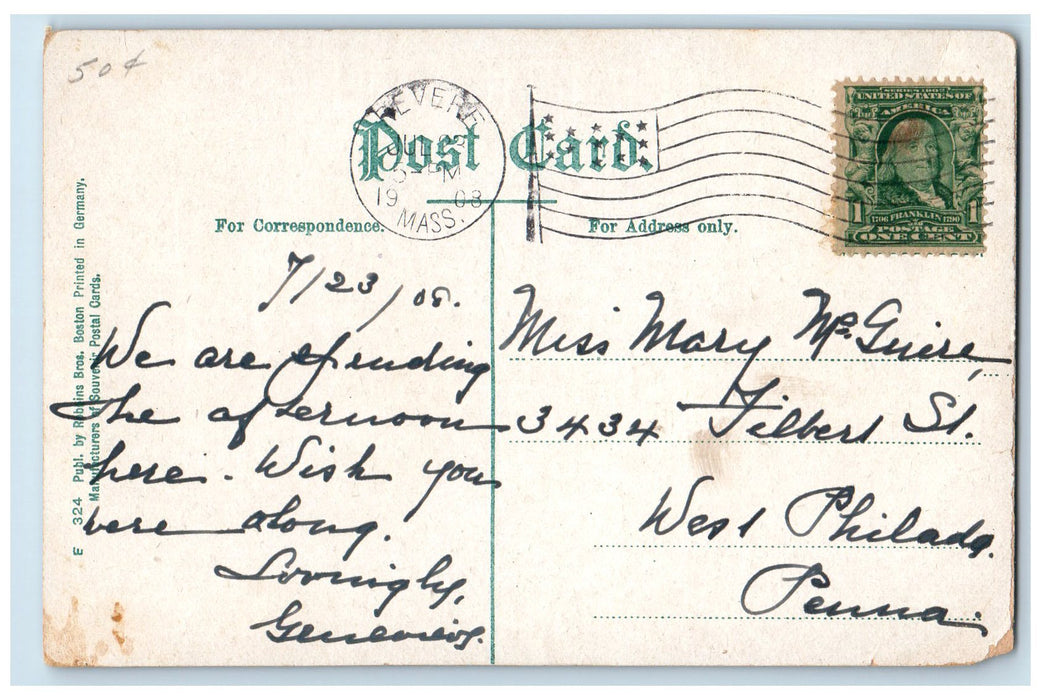 50¢
REVERE
JUL 23
M
1908
MASS.
Post Card.
SERIES 1902
UNITED STATES OF
AMERICA
1 1706 FRANKLIN 1790 1
POSTAGE
ONE CENT
For Correspondence.
For Address only.
7/23/08.
We are spending
the afternoon
here. Wish you
were along.
Lovingly,
Genevieve.
Miss Mary McGuire,
3434 Filbert St.
West Philada.
Penna.
E 324 Publ. by Robbins Bros. Boston Printed in Germany.
Manufacturers of Souvenir Postal Cards.